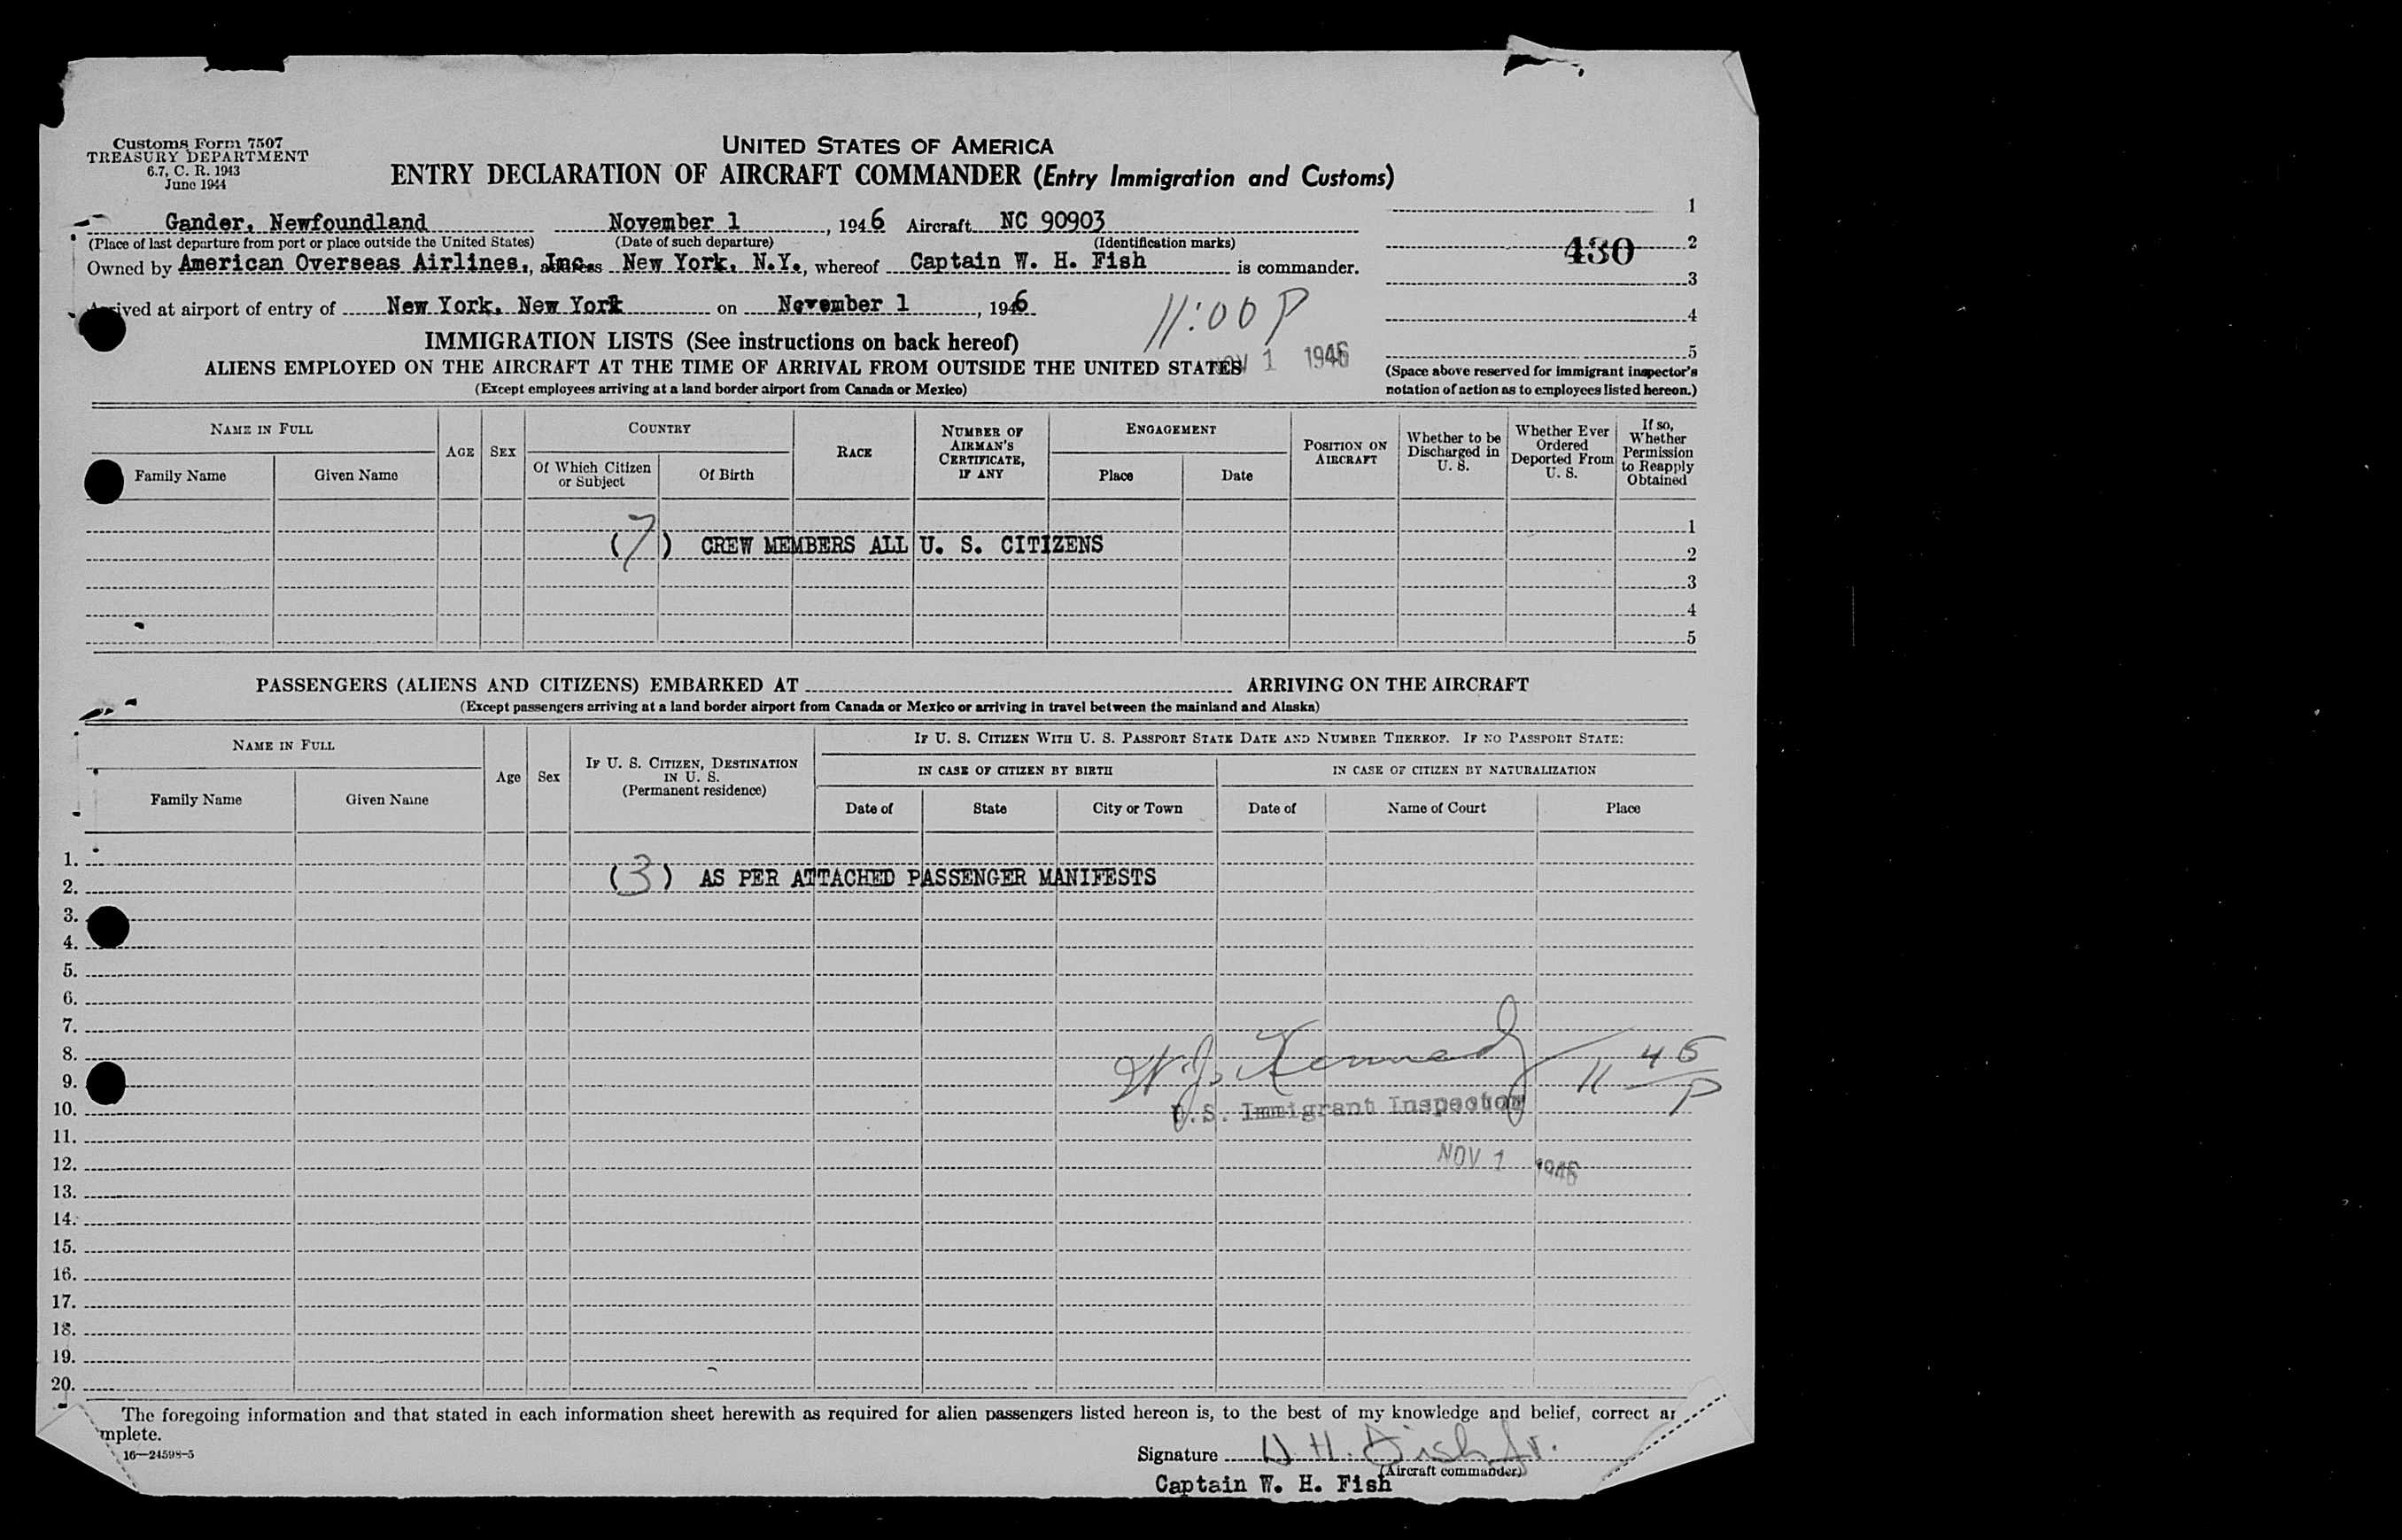 Customs Form 7507
TREASURY DEPARTMENT
6.7, C. R. 1943
June 1944
UNITED STATES OF AMERICA
ENTRY DECLARATION OF AIRCRAFT COMMANDER (Entry Immigration and Customs)
Gander, Newfoundland November 1, 1946 Aircraft NC 90903
(Place of last departure from port or place outside the United States) (Date of such departure) (Identification marks)
Owned by American Overseas Airlines, Inc., address New York, N.Y., whereof Captain W. H. Fish is commander.
Arrived at airport of entry of New York, New York on November 1, 1946
1
430 2
3
4
5
(Space above reserved for immigrant inspector's
notation of action as to employees listed hereon.)
11:00 P
NOV 1 1946
IMMIGRATION LISTS (See instructions on back hereof)
ALIENS EMPLOYED ON THE AIRCRAFT AT THE TIME OF ARRIVAL FROM OUTSIDE THE UNITED STATES
(Except employees arriving at a land border airport from Canada or Mexico)
NAME IN FULL
Family Name
Given Name
AGE
SEX
COUNTRY
Of Which Citizen
or Subject
Of Birth
RACE
NUMBER OF
AIRMAN'S
CERTIFICATE,
IF ANY
ENGAGEMENT
Place
Date
POSITION ON
AIRCRAFT
Whether to be
Discharged in
U. S.
Whether Ever
Ordered
Deported From
U. S.
If so,
Whether
Permission
to Reapply
Obtained
1
(7) CREW MEMBERS ALL U. S. CITIZENS
2
3
4
5
PASSENGERS (ALIENS AND CITIZENS) EMBARKED AT ARRIVING ON THE AIRCRAFT
(Except passengers arriving at a land border airport from Canada or Mexico or arriving in travel between the mainland and Alaska)
NAME IN FULL
Family Name
Given Name
Age
Sex
IF U. S. CITIZEN, DESTINATION
IN U. S.
(Permanent residence)
IF U. S. CITIZEN WITH U. S. PASSPORT STATE DATE AND NUMBER THEREOF. IF NO PASSPORT STATE:
IN CASE OF CITIZEN BY BIRTH
IN CASE OF CITIZEN BY NATURALIZATION
Date of
State
City or Town
Date of
Name of Court
Place
1.
2. (3) AS PER ATTACHED PASSENGER MANIFESTS
3.
4.
5.
6.
7.
8.
9. W. J. Kennedy 11 45 P
10. U.S. Immigrant Inspector
11.
12. NOV 1 1946
13.
14.
15.
16.
17.
18.
19.
20.
The foregoing information and that stated in each information sheet herewith as required for alien passengers listed hereon is, to the best of my knowledge and belief, correct ar
mplete.
16—24598-5
Signature W. H. Fish Jr.
(Aircraft commander)
Captain W. H. Fish